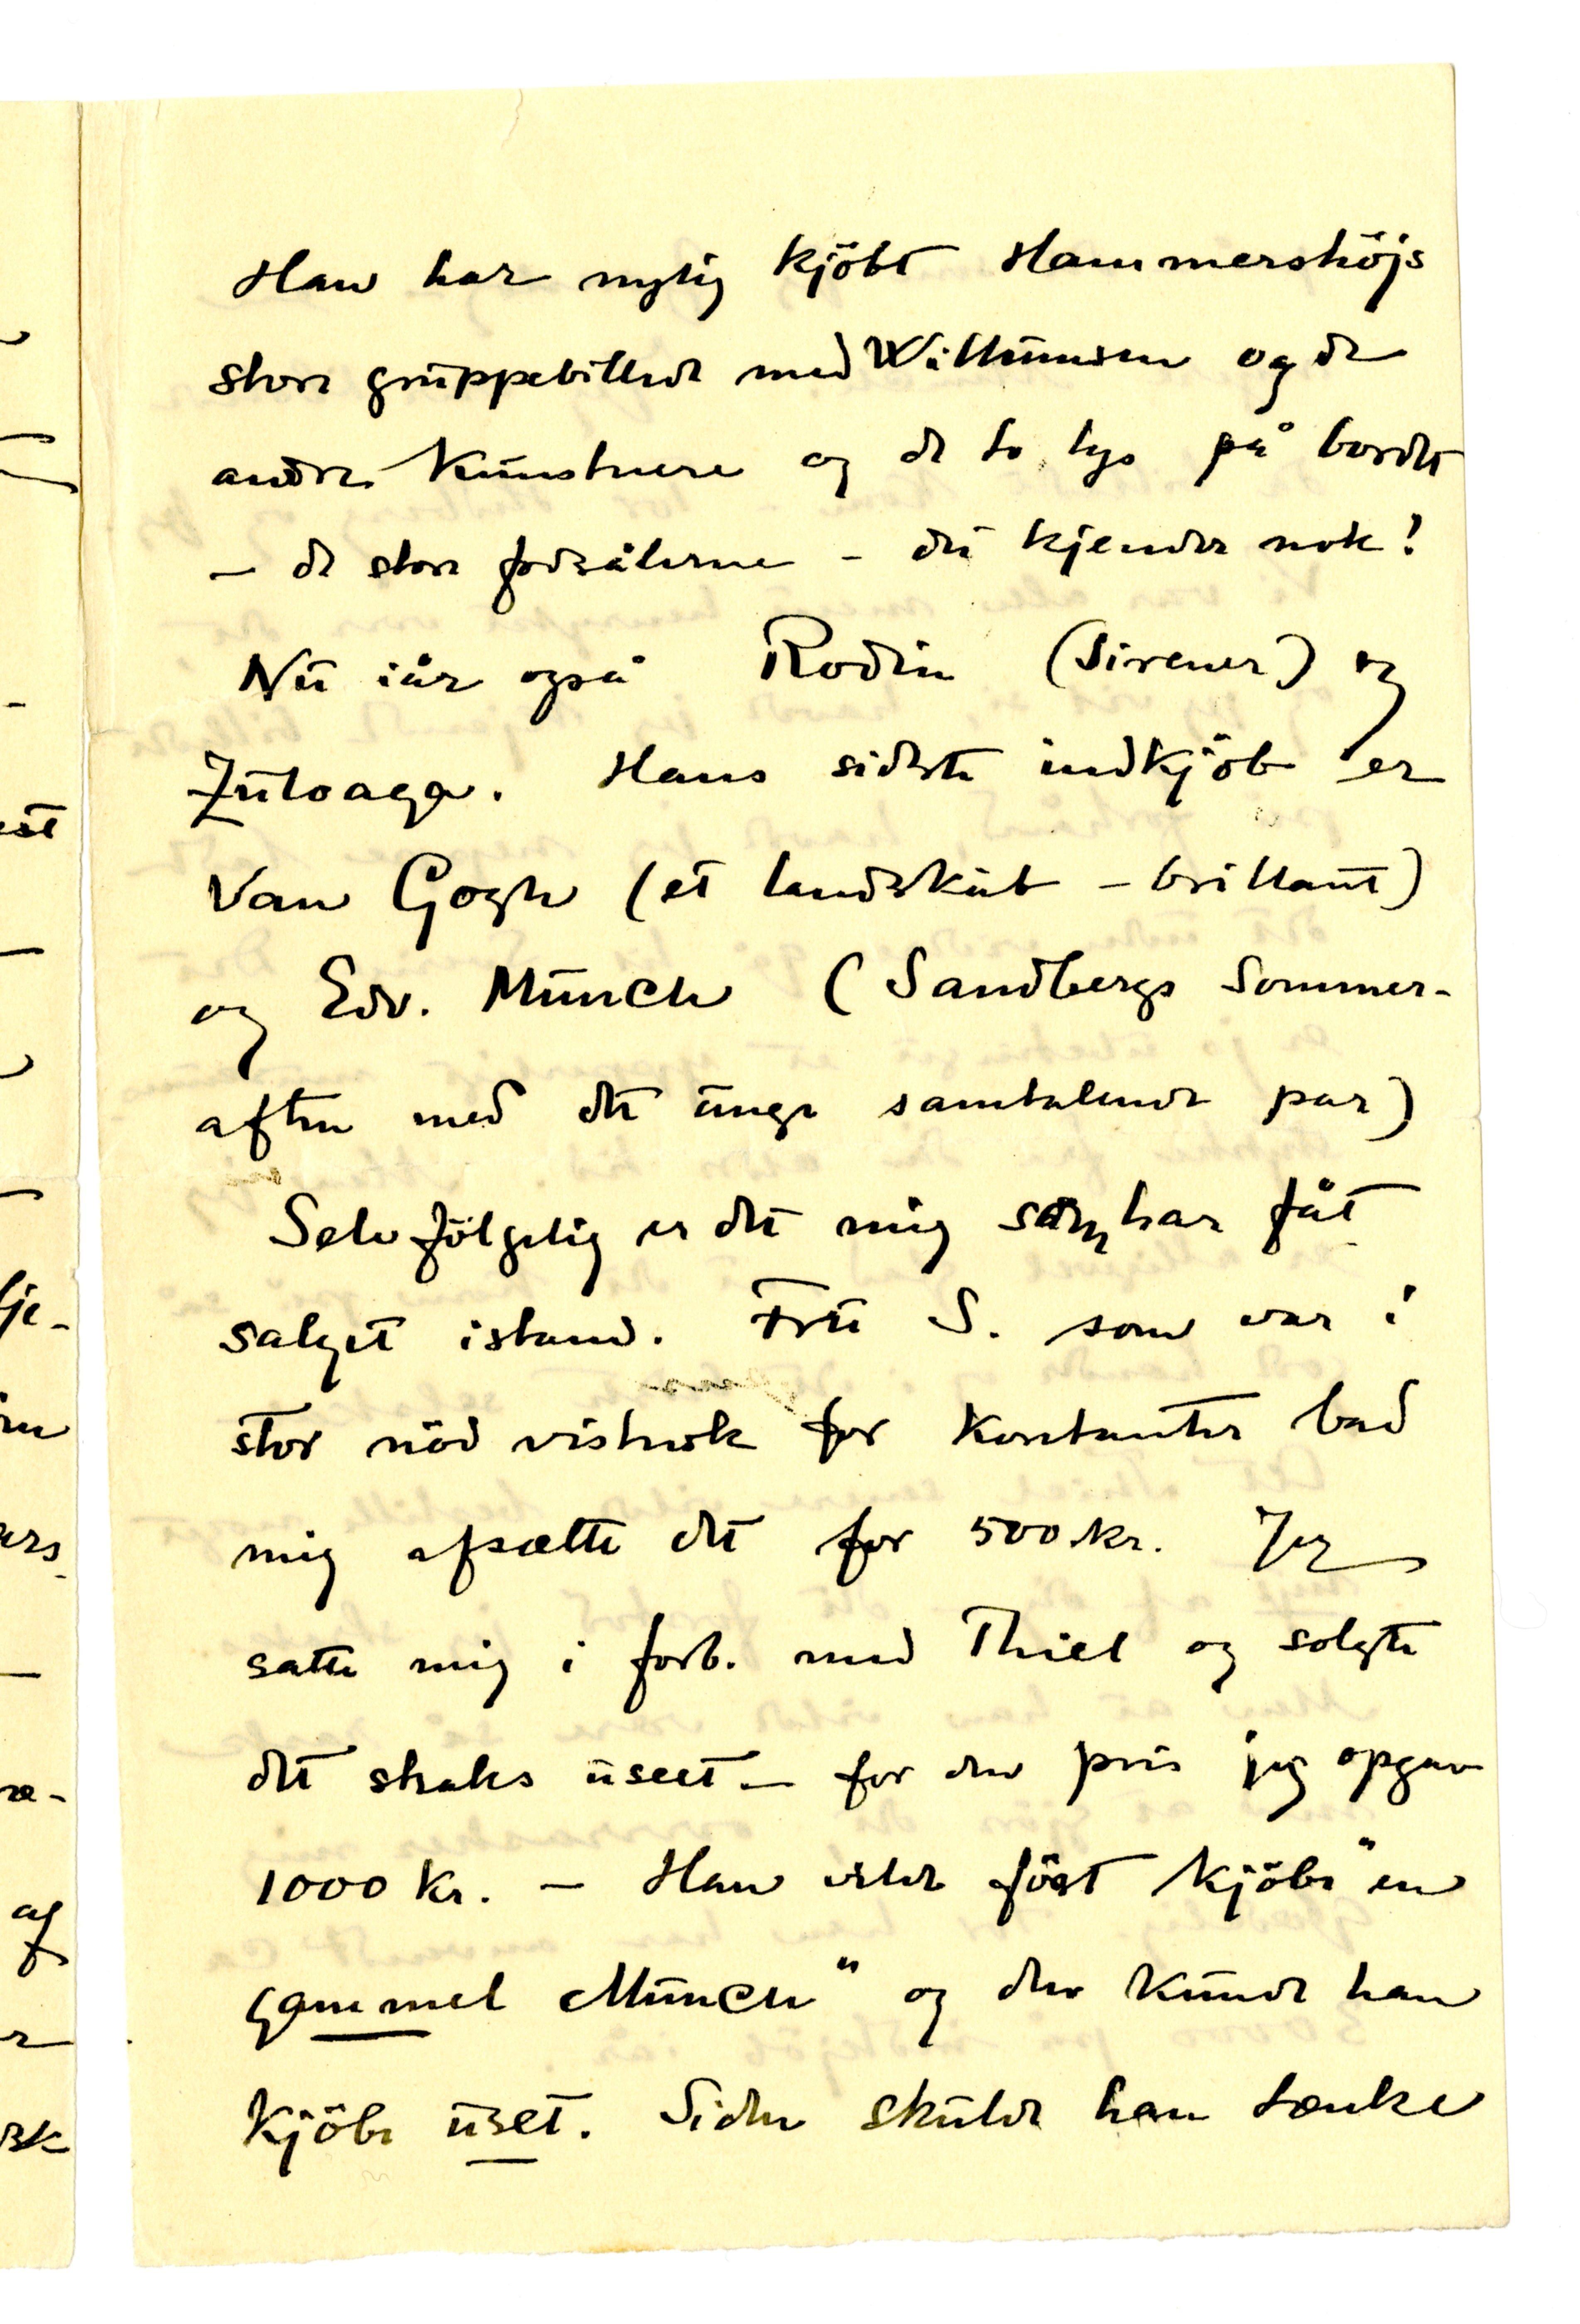 Han har nylig kjöbt Hammershöjs
store gruppebillede med Willumsen og de
andre Kunstnere og de to lys på bordet
– de store fodsålerne – du kjender nok!
Nu iår også Rodin (Sirener) og
Zuloaga. Hans sidste indkjöb er
Van Gogh (et landskab – brillant)
og Edv. Munch (Sandbergs Sommer-
aften med det unge samtalende par)
Selvfölgelig er det mig som har fåt
salget istand. Fru S. som var i
stor nöd vistnok for Kontanter bad
mig afsætte det for 500 kr. Jeg
satte mig i forb. med Thiel og solgte
det straks useet – for den pris jeg opgav
1000 Kr. – Han vilde föst kjöbe "en
gammel Munch" og den kunde han
kjöbe uset. Siden skulde han tænke
est
je-
ers
af